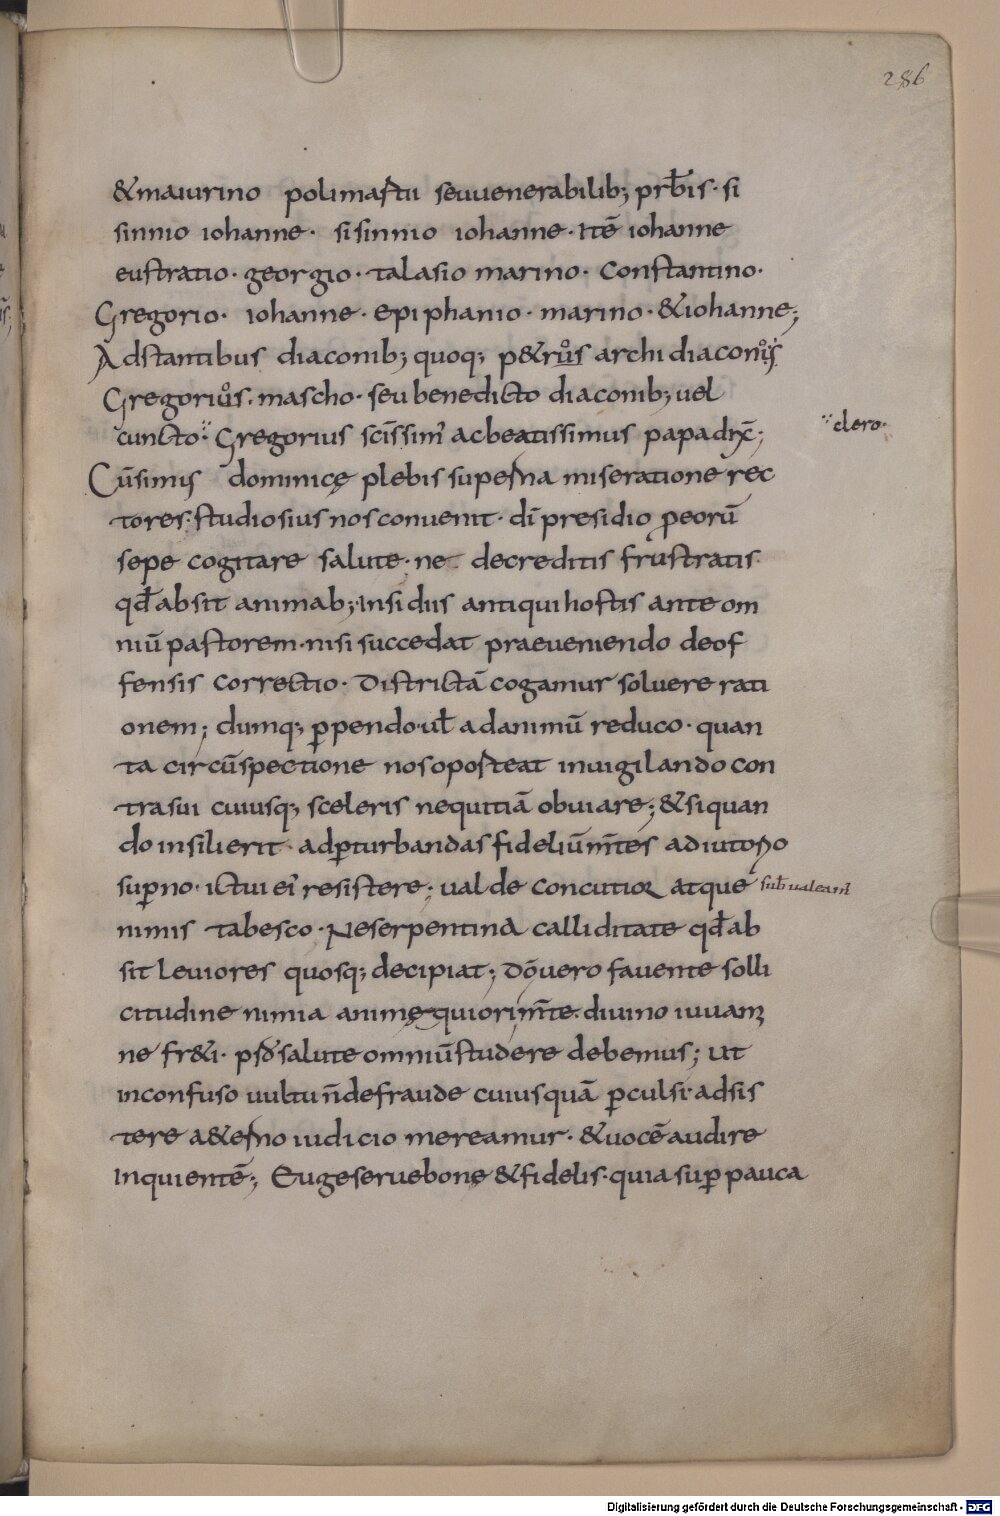 286
&maiurino polimastii seuuenerabilib; prb̄is· si
sinnio iohanne· sisinnio iohanne· Itē iohanne
eustratio· georgio· talasio marino· Constantino·
Gregorio· iohanne· epiphanio· marino· &iohanne;
Adstantibus diaconib; quoq; p&rus archidiaconus
Gregorius· mascho· seu benedicto diaconib; uel
cuncto· Gregorius scīssim' ac beatissimus papa dix̄;
clero·
Cūsimus dominicę plebis superna miseratione rec
tores· studiosius nos conuenit· dī presidio p eorū
sepe cogitare salute· ne decreditis frustratis·
qđ absit animab; insidiis antiqui hostis ante om
niū pastorem· nisi succedat praeueniendo deof
fensis correctio· Districtā cogamur soluere rati
onem; dumq; ppendo· ul̄ ad animū reduco· quan
ta circūspectione nos oporteat inuigilando con
tra sui cuiusq; sceleris nequitiā obuiare; &siquan
do insilierit· ad pturbandas fideliū m̄tes adiutorio
supno· ictui ei' resistere; ualde concutior atque
sub ualeam
nimis tabesco· Ne serpentina calliditate qđ ab
sit leuiores quosq; decipiat; dō uero fauente solli
citudine nimia animę quiori m̄te· diuino iuuam
ne fr&i· p salute omniū studere debemus; Ut
inconfuso uultu n̄ defraude cuiusquā pculsi· adsis
tere a&erno iudicio mereamur· &uocē audire
inquientē; Euge serue bone &fidelis· quia sup pauca
Digitalisierung gefördert durch die Deutsche Forschungsgemeinschaft - DFG